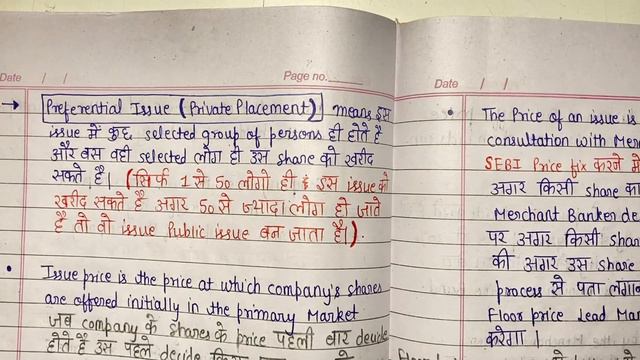 Date / /
Page no.
→ Preferential Issue (Private Placement) means इस
issue में कुछ selected group of persons ही होते है
और बस वही selected लोग ही उस share को खरीद
सकते है। (सिर्फ 1 से 50 लोगो ही इस issue को
खरीद सकते है अगर 50 से ज्यादा लोग हो जाते
है तो वो issue Public issue बन जाता है।).
• Issue price is the price at which company's shares
are offered initially in the primary Market
जब company के shares के price पहली बार decide
होते है उस पहले decide
Date / /
• The Price of an issue is
consultation with Mer
SEBI Price fix करने में
अगर किसी share का
Merchant Banker de
पर अगर किसी shar
की अगर उस share
process से पता लगान
Floor price Lead Mar
करेगा।